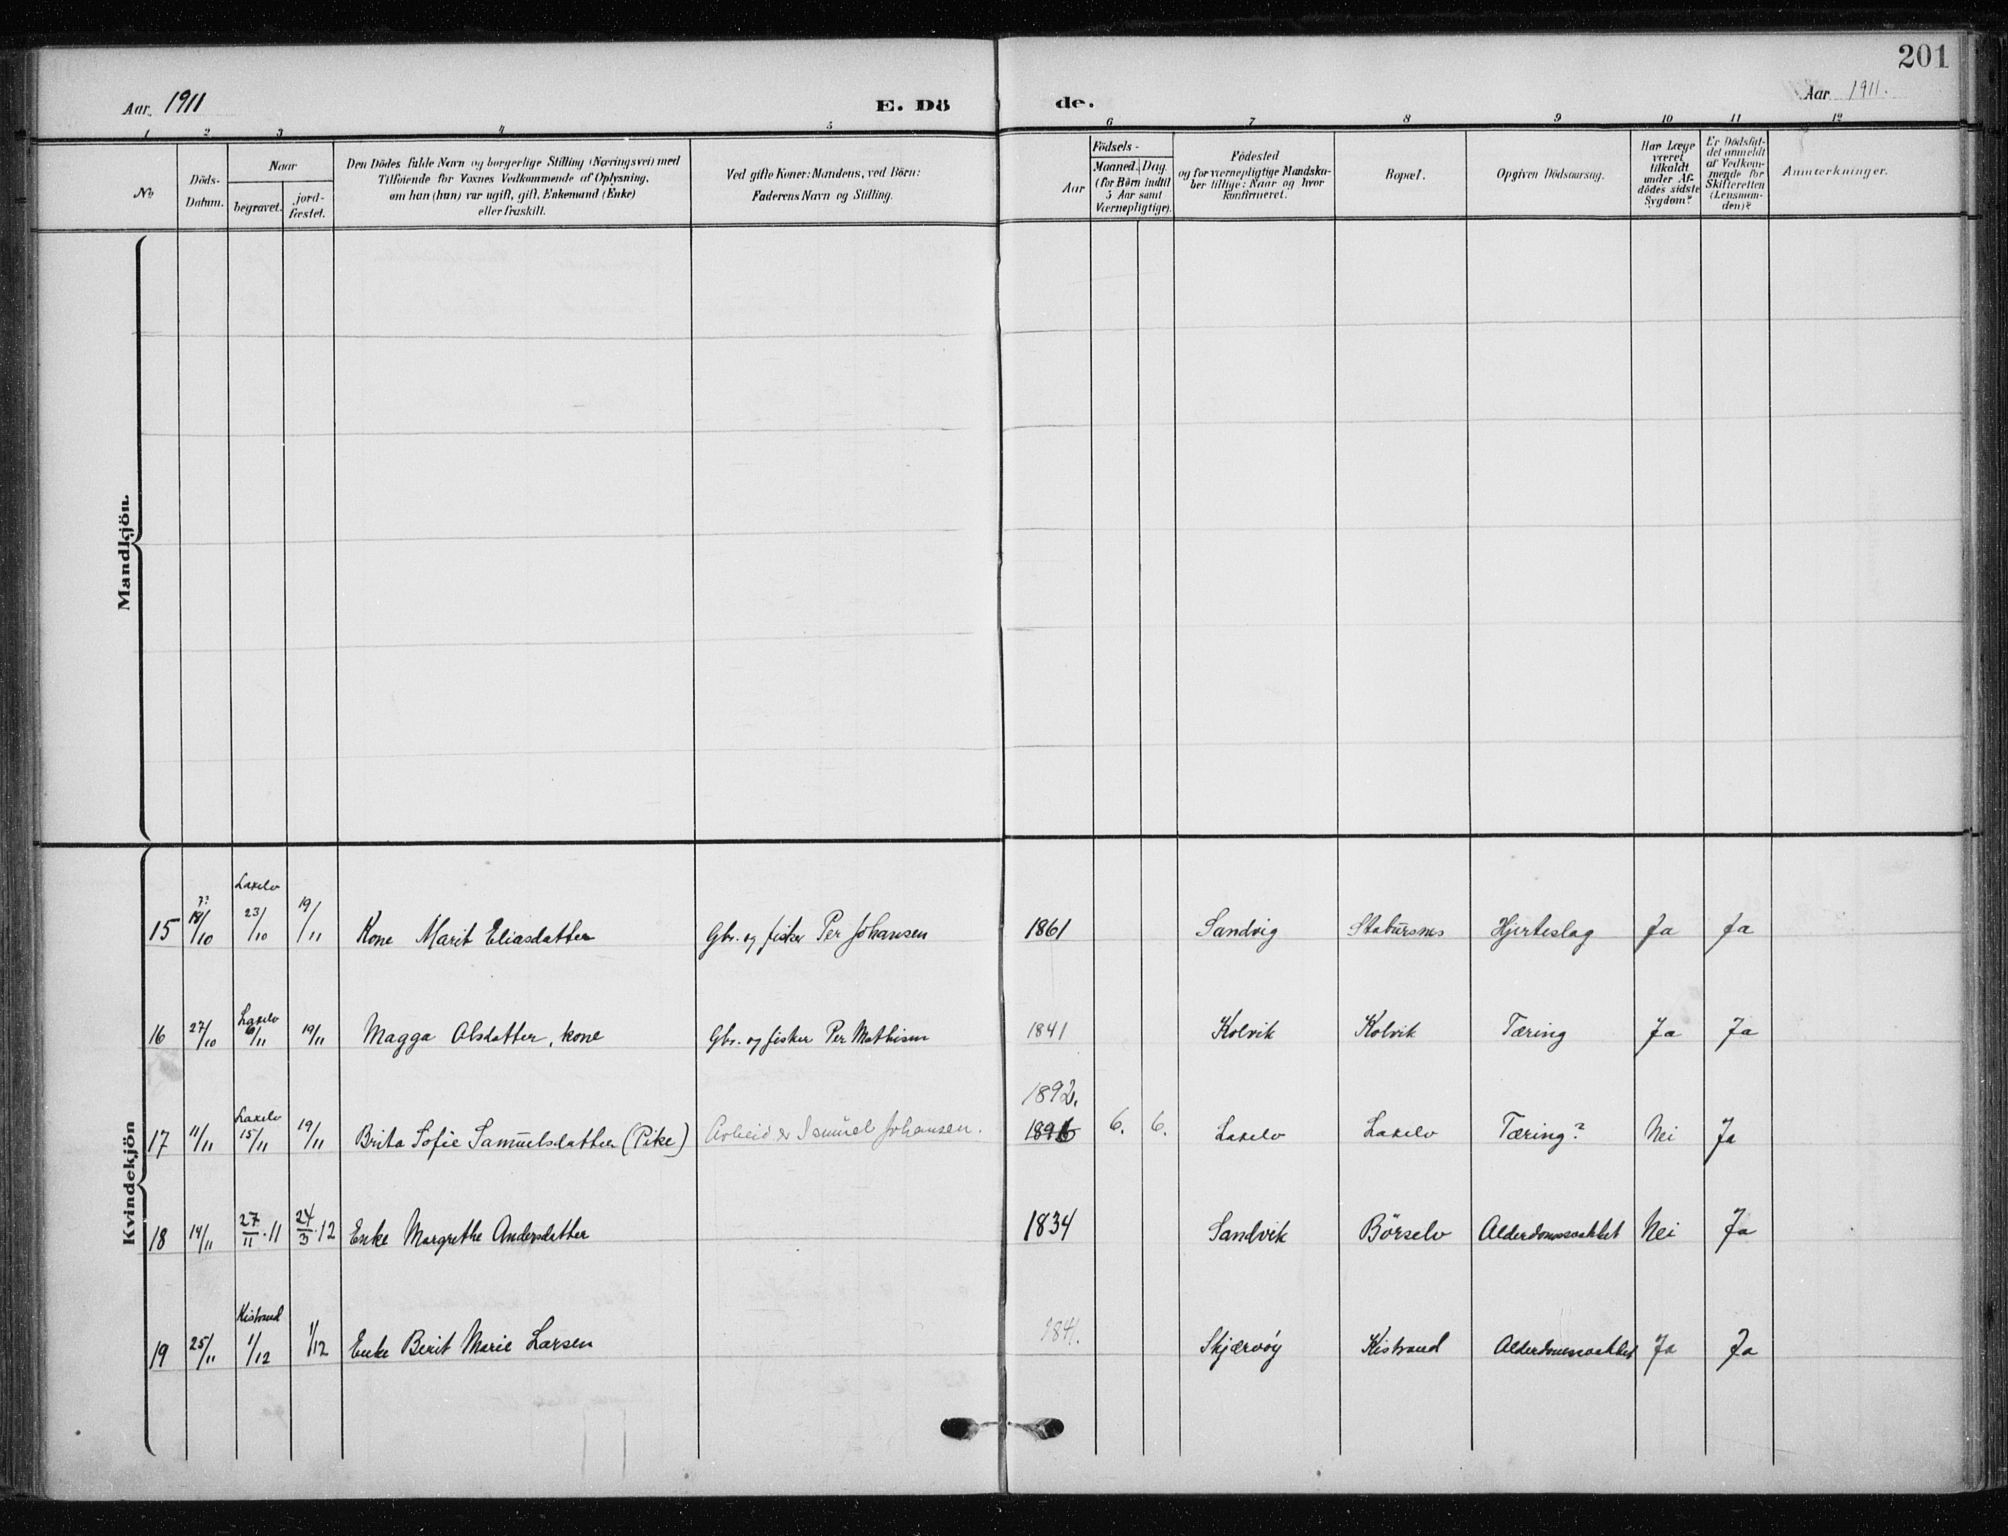 201
Aar 1911
E. Dö
de.
Aar 1911.
1 2 3 4 5 6 7 8 9 10 11 12
No
Döds-
Datum.
Naar
begravet.
jord-
fæstet.
Den Dödes fulde Navn og borgerlige Stilling (Næringsvei) med
Tilföiende for Voxnes Vedkommende af Oplysning,
om han (hun) var ugift, gift, Enkemand (Enke)
eller fraskilt.
Ved gifte Koner: Mandens, ved Börn:
Faderens Navn og Stilling.
Födsels-
Aar
Maaned. Dag.
(for Börn indtil
5 Aar samt
Værnepligtige).
Födested
og for værnepligtige Mandska-
ber tillige: Naar og hvor
konfirmeret.
Bopæl.
Opgiven Dödsaarsag.
Har Læge
været
tilkaldt
under Af-
dödes sidste
Sygdom?
Er Dödsfal-
det anmeldt
af Vedkom-
mende for
Skifteretten
(Lensman-
den)?
Anmærkninger.
Mandkjön.
Kvindekjön
Laxelv
15 18/10 23/10 19/11 Kone Marit Eliasdatter Gbr. og fisker Per Johansen 1861 Sandvig Stabursnes Hjerteslag Ja Ja
Laxelv
16 27/10 6/11 19/11 Magga Olsdatter, kone Gbr. og fisker Per Mathisen 1841 Kolvik Kolvik Tæring Ja Ja
1892.
Laxelv
17 11/11 15/11 19/11 Brita Sofie Samuelsdatter (Pike) Arbeider Samuel Johansen. 6. 6. Laxelv Laxelv Tæring? Nei Ja
18 14/11 27/11·11 24/3·12 Enke Margrethe Andersdatter 1834 Sandvik Börselv Alderdomssvakhet Nei Ja
Kistrand
19 25/11 1/12 1/12 Enke Berit Marie Larsen 1841. Skjærvöy Kistrand Alderdomssvakhet Ja Ja